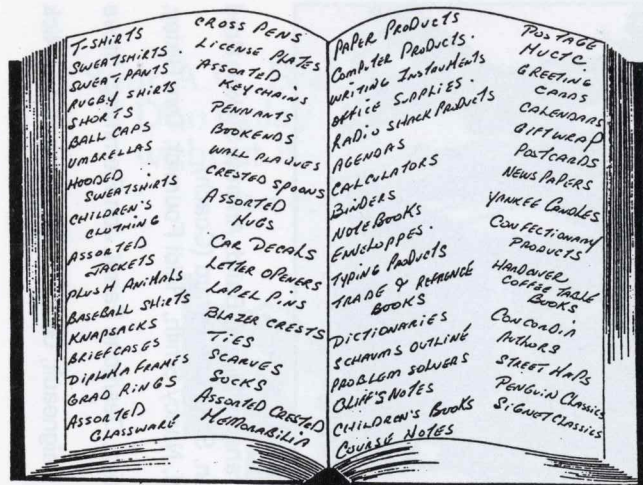 T-SHIRTS
SWEATSHIRTS.
SWEATPANTS
RUGBY SHIRTS
SHORTS
BALL CAPS
UMBRELLAS
HOODED
SWEATSHIRTS
CHILDREN'S
CLOTHING
ASSORTED
JACKETS
PLUSH ANIMALS
BASEBALL SHIRTS
KNAPSACKS
BRIEFCASES
DIPLOMA FRAMES
GRAD RINGS
ASSORTED
GLASSWARE
CROSS PENS
LICENSE PLATES
ASSORTED
KEYCHAINS
PENNANTS
BOOKENDS
WALL PLAQUES
CRESTED SPOONS
ASSORTED
MUGS
CAR DECALS
LETTER OPENERS
LAPEL PINS
BLAZER CRESTS
TIES
SCARVES
SOCKS
ASSORTED CRESTED
MEMORABILIA
PAPER PRODUCTS
COMPUTER PRODUCTS.
WRITING INSTRUMENTS
OFFICE SUPPLIES.
RADIO SHACK PRODUCTS
AGENDAS
CALCULATORS
BINDERS
NOTEBOOKS
ENVELOPPES.
TYPING PRODUCTS
TRADE & REFERENCE
BOOKS
DICTIONARIES
SCHAUMS OUTLINE
PROBLEM SOLVERS
CLIFF'S NOTES
CHILDREN'S BOOKS
COURSE NOTES
POSTAGE
MUCTC
GREETING
CARDS
CALENDARS
GIFTWRAP
POSTCARDS
NEWSPAPERS
YANKEE CANDLES
CONFECTIONARY
PRODUCTS
HARDOVER
COFFEE TABLE
BOOKS
CONCORDIA
AUTHORS
STREET MAPS
PENGUIN CLASSICS
SIGNET CLASSICS